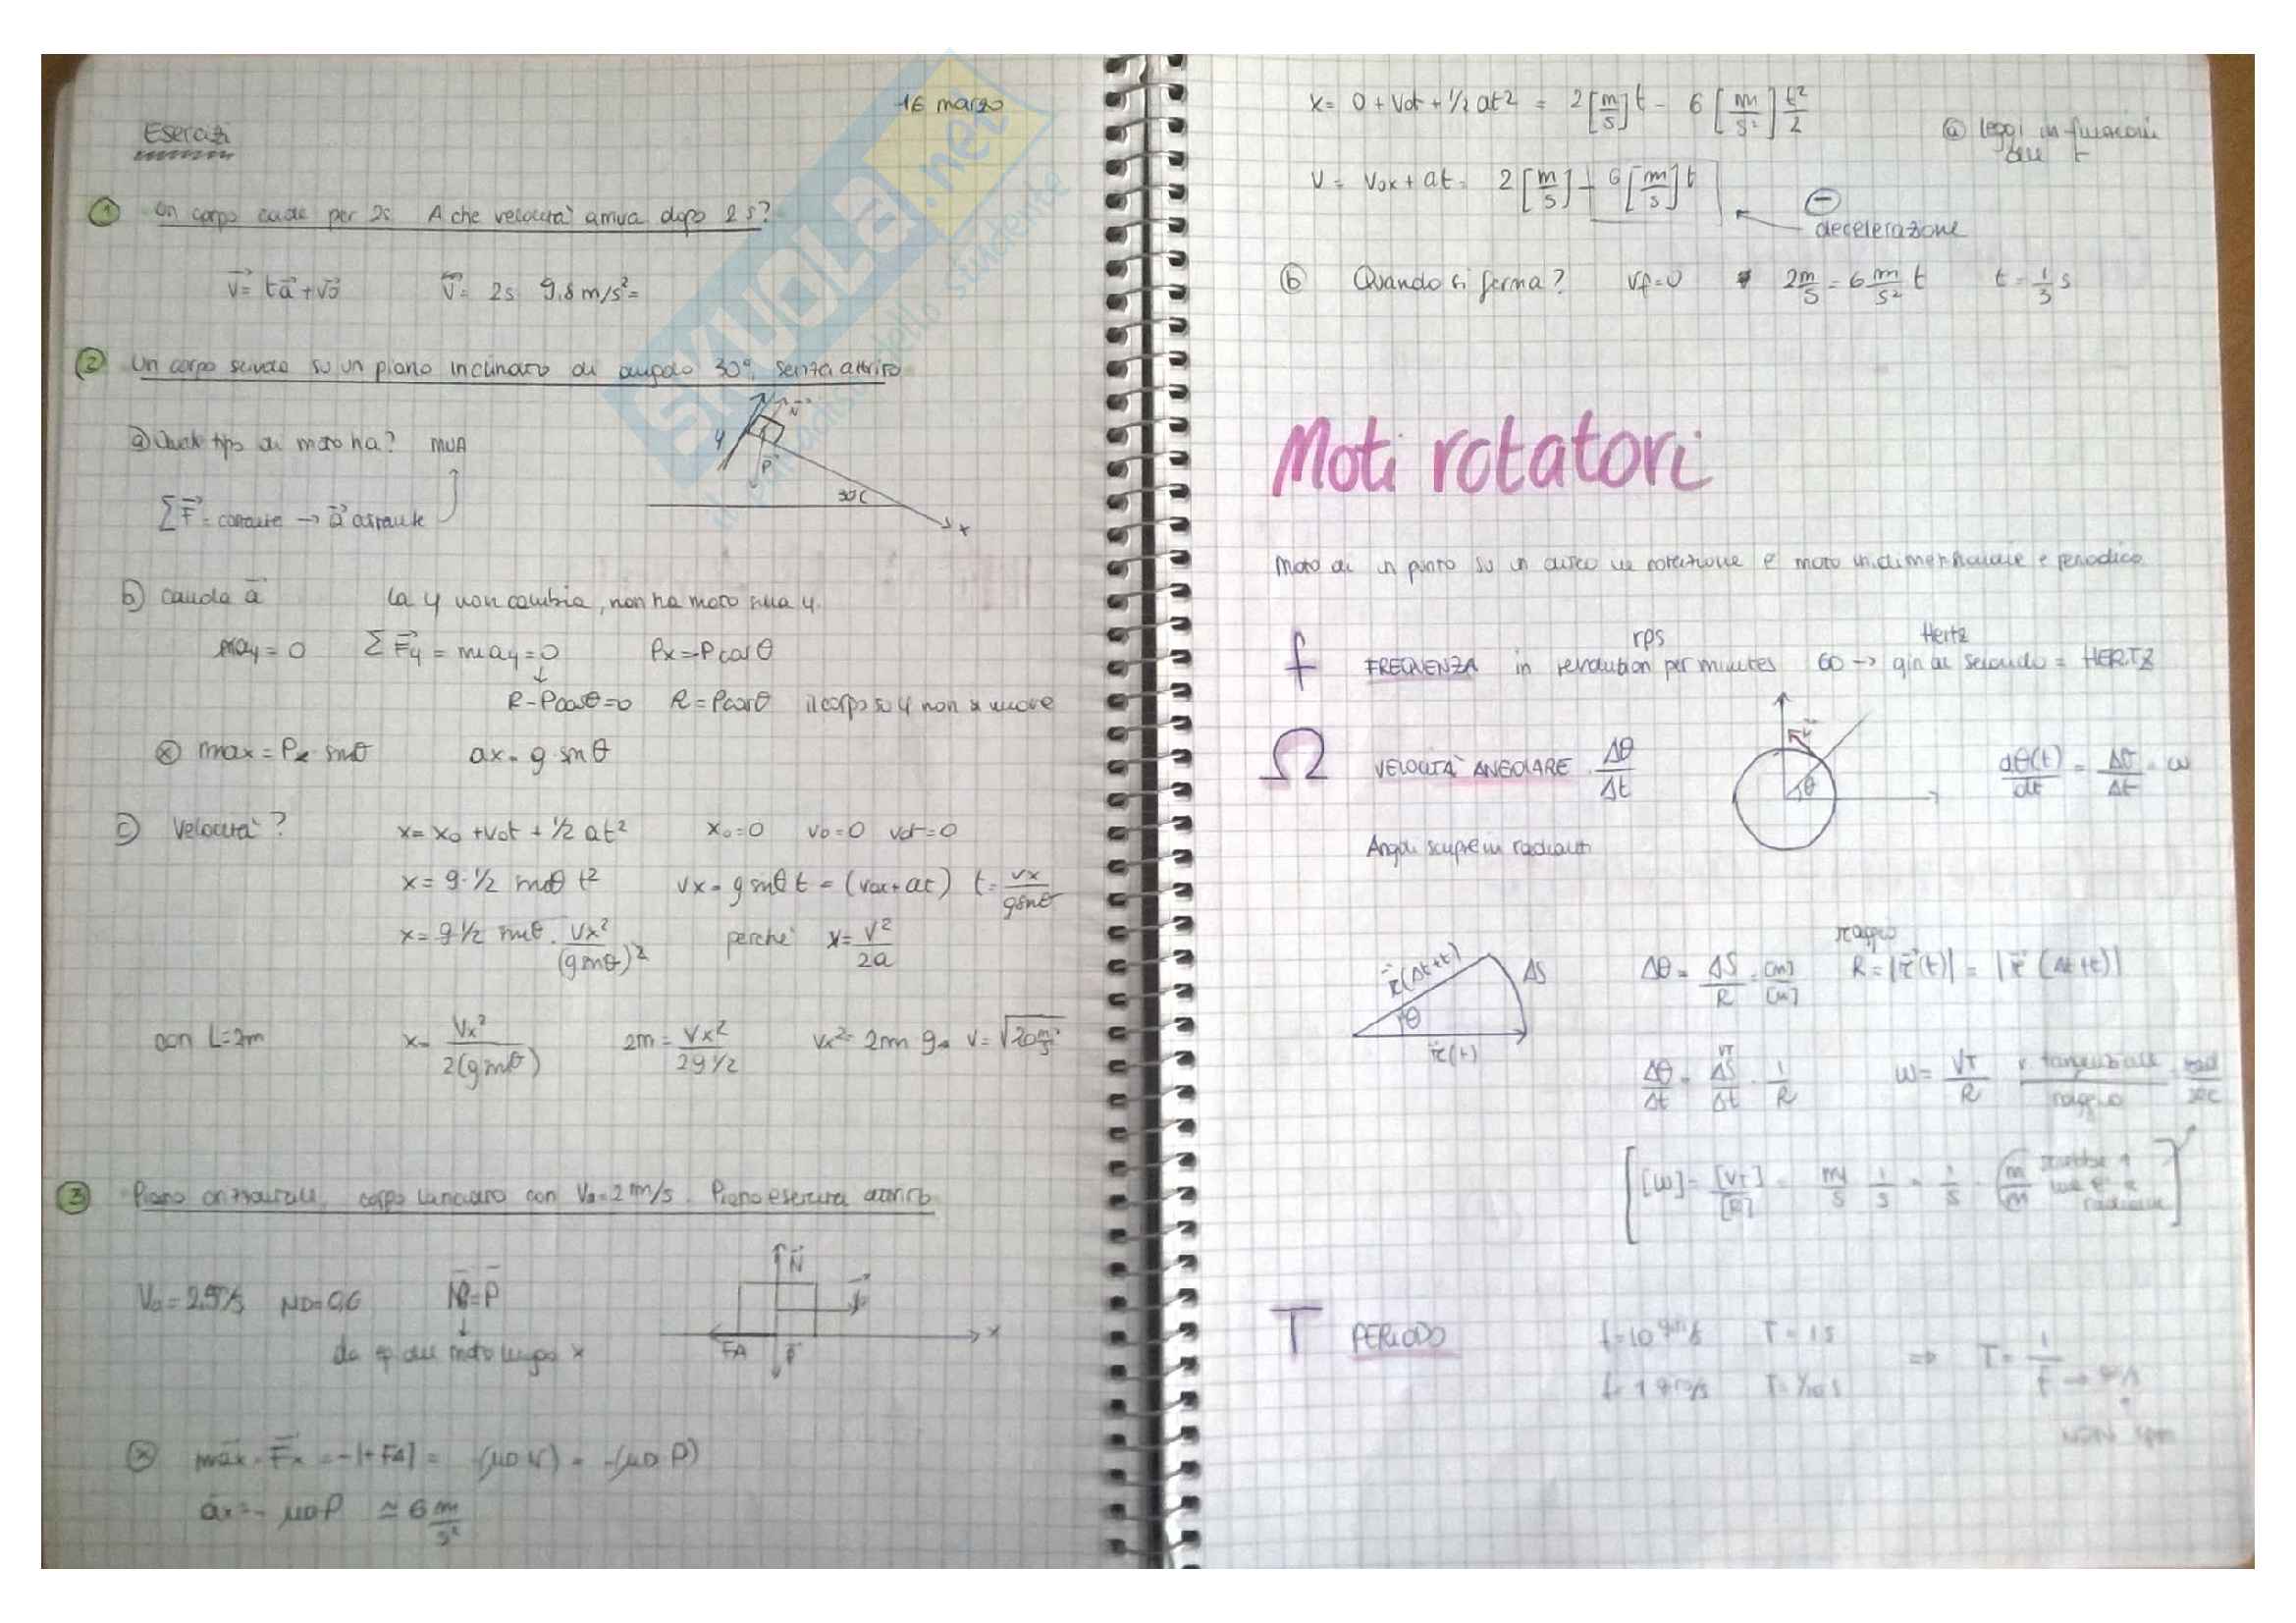 16 marzo
Esercizi
① Un corpo cade per 2s. A che velocità arriva dopo 2s?
v⃗ = ta⃗ + v⃗0   v⃗ = 2s 9.8 m/s² =
② Un corpo scivola su un piano inclinato di angolo 30°, senza attrito
a) Quale tipo di moto ha? MUA
N⃗
y
P⃗
30°
x
ΣF⃗ = costante → a⃗ costante
b) calcola a⃗   la y non cambia, non ha moto sulla y.
may = 0   ΣF⃗y = may = 0   Px = -Pcosθ
↓
R - Pcosθ = 0   R = Pcosθ   il corpo su y non si muove
ⓧ max = Px · sinθ   ax = g · sinθ
c) Velocità?   x = x0 + v0t + ½ at²   x0 = 0   v0 = 0   v0t = 0
x = g · ½ sinθ t²   vx = g sinθ t = (v0x + at)   t = vx / gsinθ
x = g ½ sinθ · vx² / (g sinθ)²   perché x = v² / 2a
con L = 2m   x = Vx² / 2(g sinθ)   2m = Vx² / 2g ½   vx² = 2m g   v = √20
③ Piano orizzontale, corpo lanciato con V0 = 2 m/s. Piano esercita attrito
μD = 0,6   = P⃗
N⃗
x
FA
P⃗
moto lungo x
ⓧ max = Fx = -|+FA| = -(μD N) = -(μD P)
ax = - μDP ≃ 6 m/s²
x = 0 + v0t + ½ at² = 2 [m/s] t - 6 [m/s²] t²/2
ⓐ leggi in funzione
di t
V = v0x + at = 2 [m/s] - 6 [m/s] t
⊖
decelerazione
ⓑ Quando si ferma?   vf = 0   2m/s = 6 m/s² t   t = 1/3 s
Moti rotatori
Moto di un punto su un disco in rotazione è moto unidimensionale e periodico
rps   Hertz
f FREQUENZA in revolution per minutes 60 → giri al secondo = HERTZ
Ω VELOCITÀ ANGOLARE Δθ/Δt
θ
dθ(t)/dt = Δθ/Δt = ω
Angoli sempre in radianti
raggio
r⃗(Δt+t)   ΔS   Δθ = ΔS/R = [m]/[m]   R = |r⃗(t)| = |r⃗(Δt+t)|
θ
r⃗(t)
vT
Δθ/Δt = ΔS/Δt · 1/R   ω = vT/R   v tangenziale / raggio   rad/sec
[ω] = [vT]/[R] = m/s 1/s = 1/s   m/m
radiante
T PERIODO   T = 1 s
⇒ T = 1/f